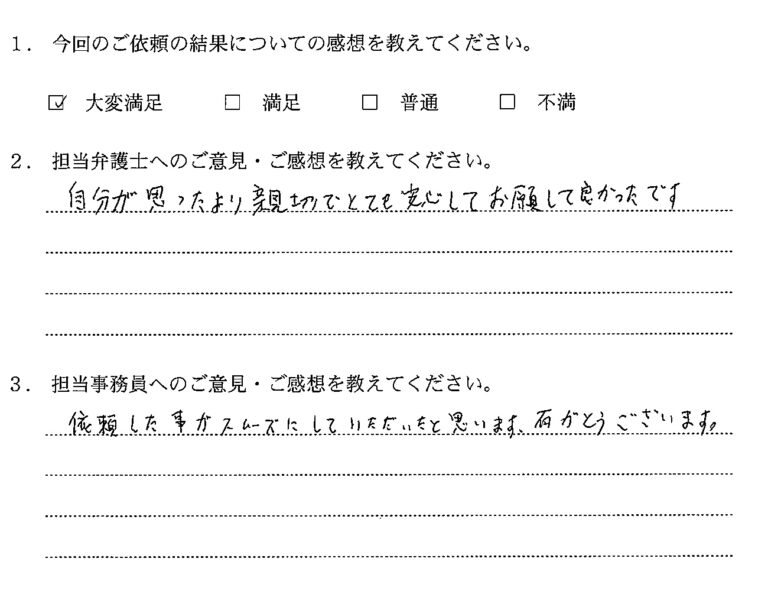 1. 今回のご依頼の結果についての感想を教えてください。
☑ 大変満足 □ 満足 □ 普通 □ 不満
2. 担当弁護士へのご意見・ご感想を教えてください。
自分が思ったより親切でとても安心してお願して良かったです
3. 担当事務員へのご意見・ご感想を教えてください。
依頼した事がスムーズにしていただいたと思います、有がとうございます。